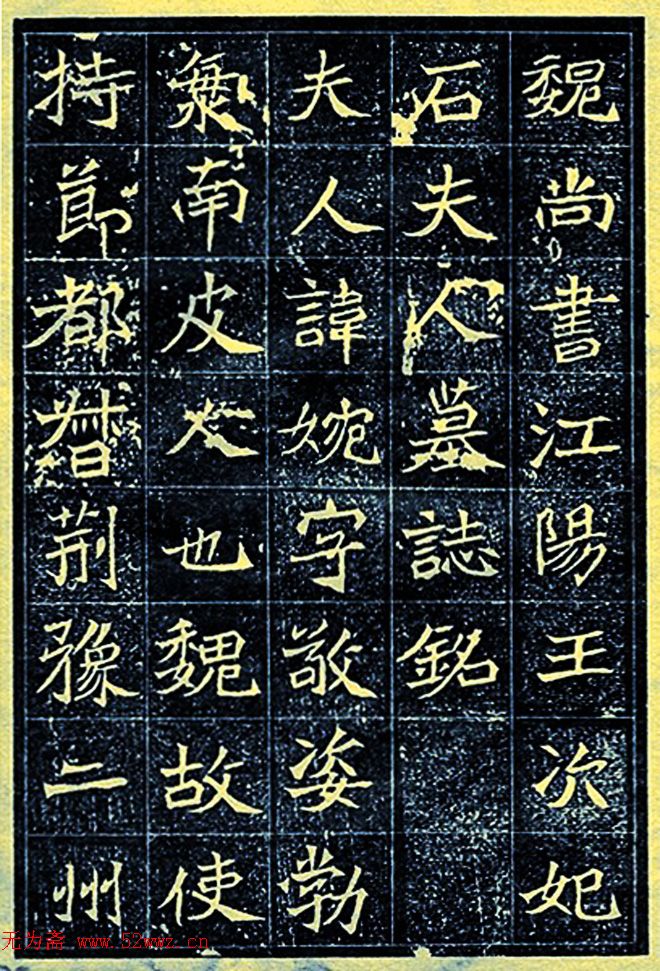 魏尚書江陽王次妃
石夫人墓誌銘
夫人諱婉字敬姿勃
海南皮人也魏故使
持節都督荊豫二州
无为斋 www.52wwz.cn